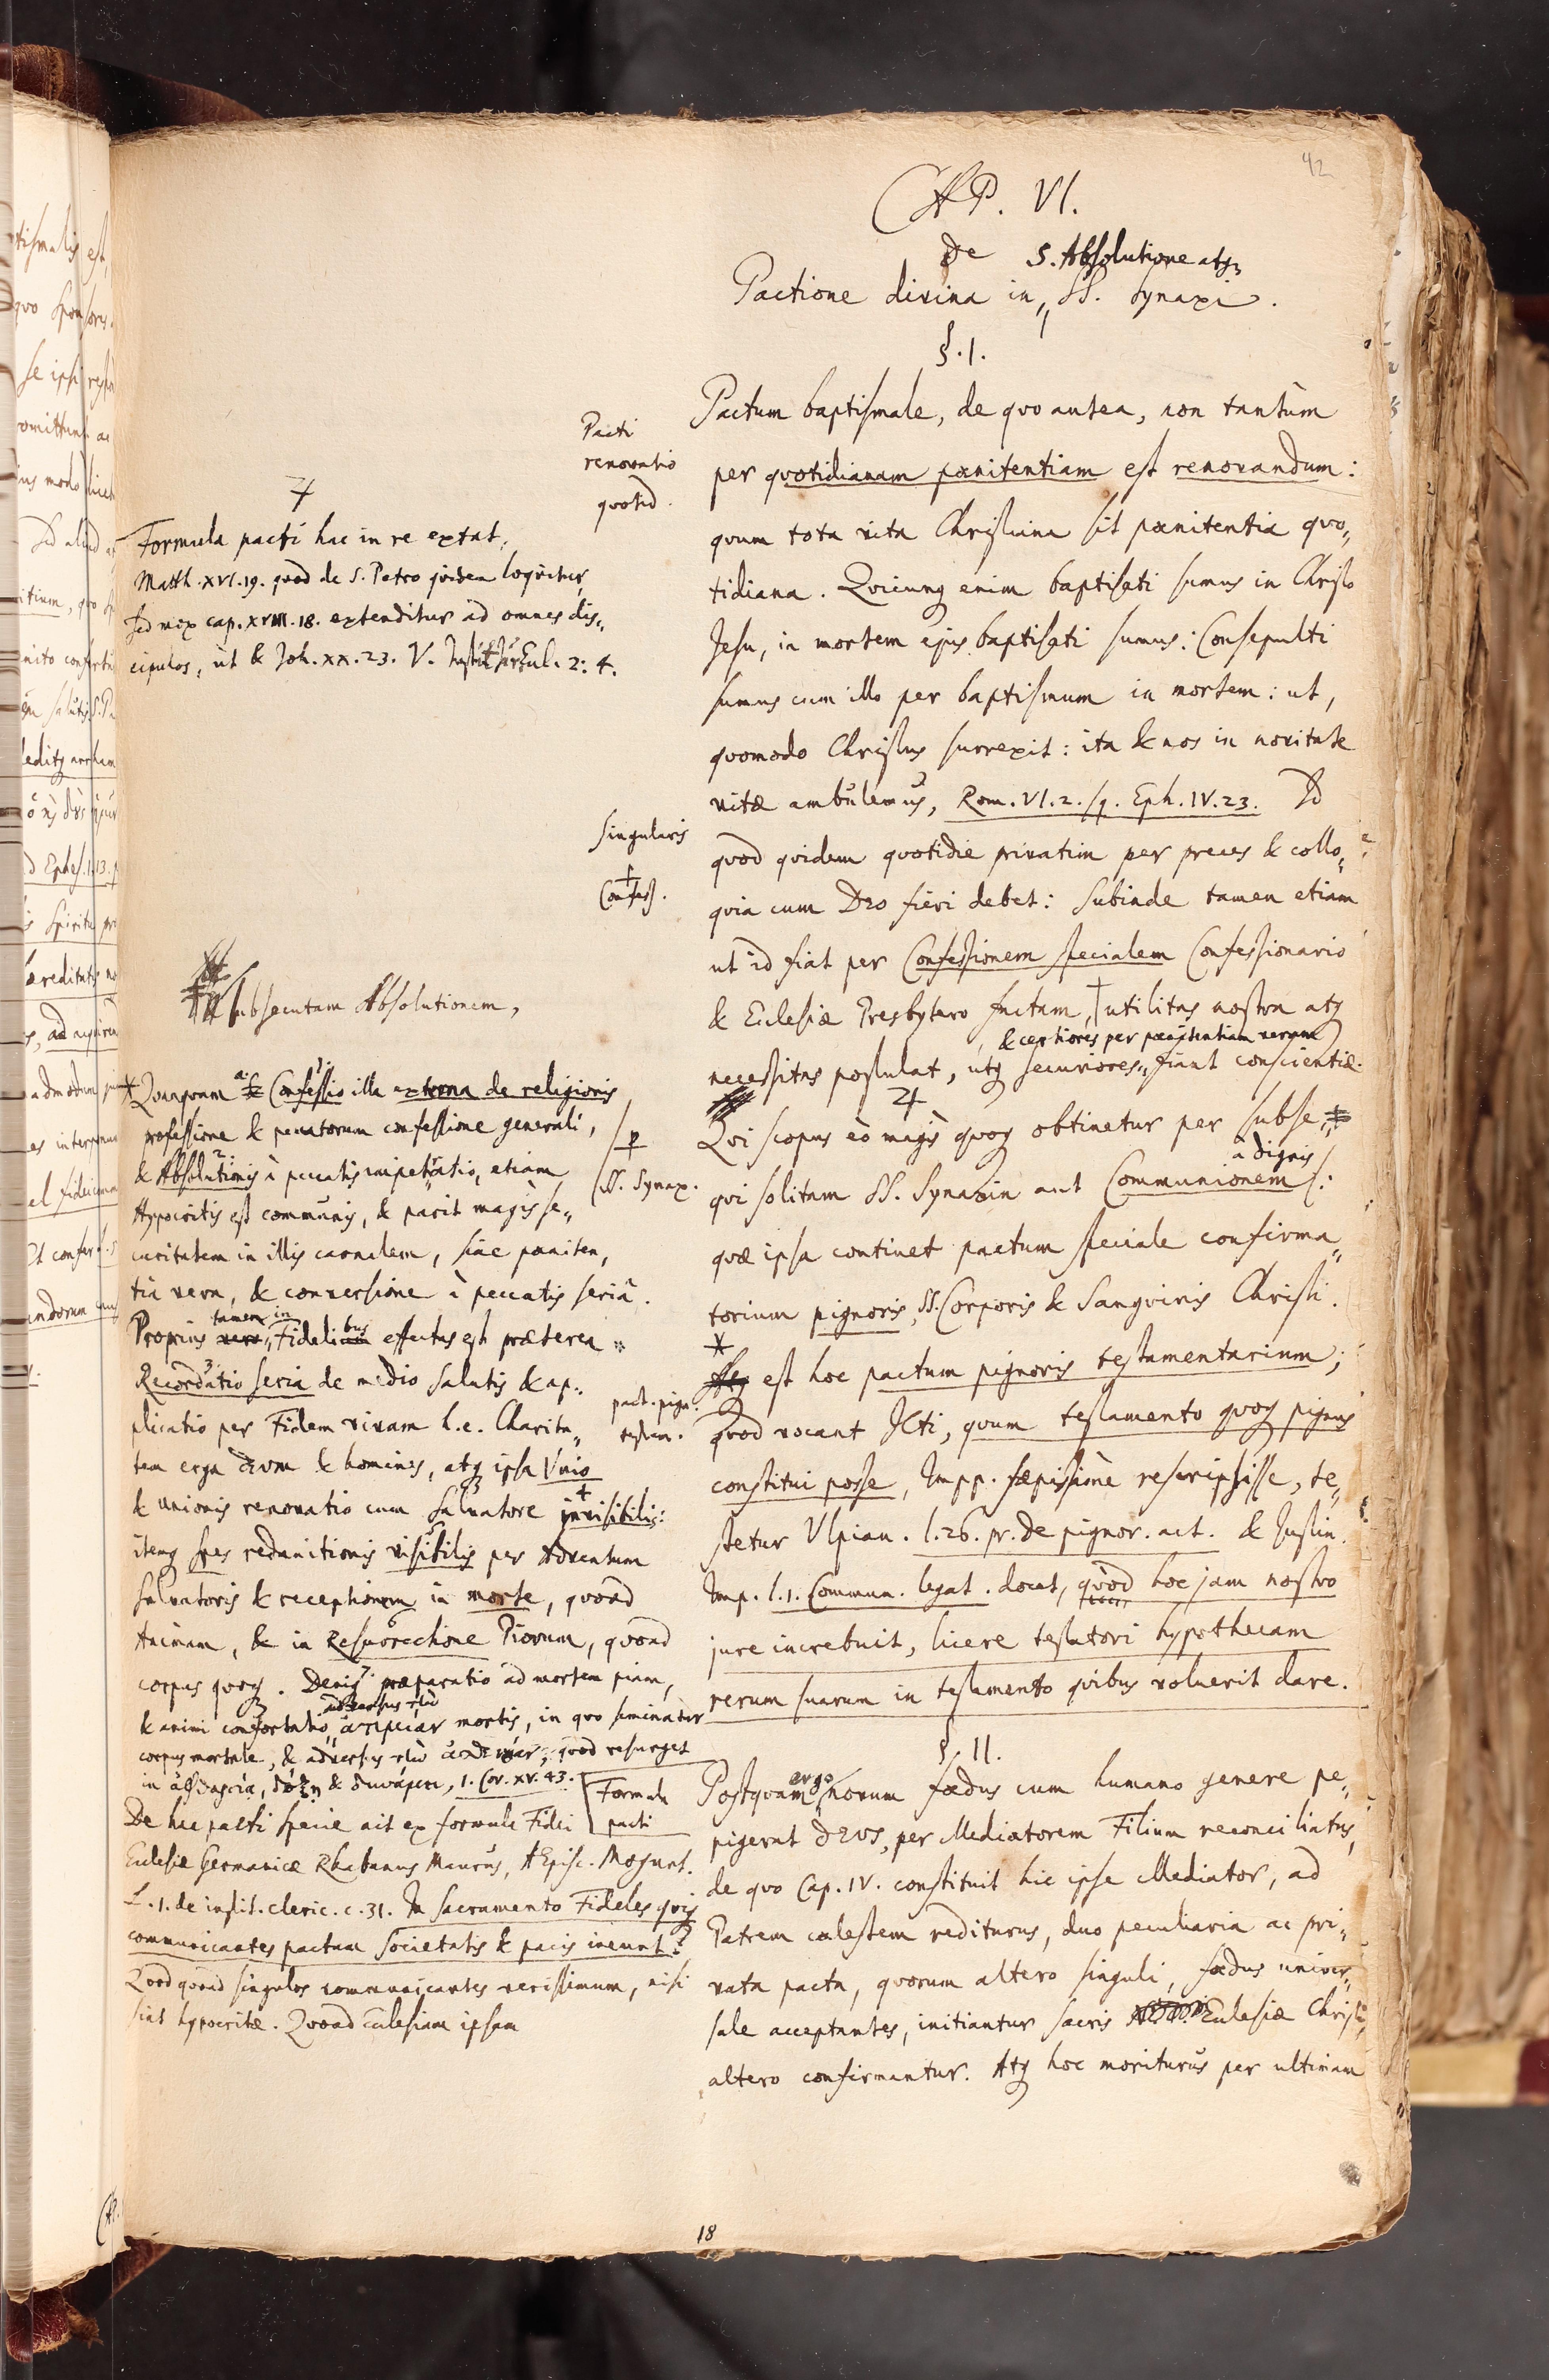 42
CAP. VI.
De S. Absolutione atq;
Pactione divina in SS. Synaxi.
§. I.
Pactum baptismale, de quo antea, non tantùm
per quotidianam pœnitentiam est renovandum:
quum tota vita Christiana sit pœnitentia quo„
tidiana. Quicunq; enim baptisati sumus in Christo
Jesu, in mortem ejus baptisati sumus: Consepulti
sumus cum illo per baptismum in mortem: ut,
quomodo Christus surrexit: ita & nos in novitate
vitæ ambulemus, Rom. VI. 2. sq. Eph. IV. 23. Id
quod quidem quotidie privatim per preces & collo„
quia cum Deo fieri debet: Subinde tamen etiam
ut id fiat per Confessionem specialem Confessionario
& Ecclesiæ Presbytero factam, † utilitas nostra atq;
& certiores per pœnitentiam veram
necessitas postulat, utq; securiores„ fiant conscientiæ.
Qui scopus eò magis quoq; obtinetur per subse„
à dignis
qui solitam SS. Synaxin aut Communionem:
quæ ipsa continet pactum speciale confirma„
torium pignoris, SS. Corporis & Sanguinis Christi.
* est hoc pactum pignoris testamentarium;
quod vocant JCti, quum testamento quoq; pignus
constitui posse, Impp. sæpissimè rescripsisse, te„
stetur Ulpian. l. 26. pr. de pignor. act. & Justin.
Imp. l. 1. Commun. legat. docet, quòd hoc jam nostro
jure increbuit, licere testatori hypothecam
rerum suarum in testamento quibus voluerit dare.
§. II.
Postquam ergo novum fœdus cum humano genere pe„
pigerat DEUS, per Mediatorem Filium reconciliatus,
de quo Cap. IV. constituit hic ipse Mediator, ad
Patrem cælestem rediturus, duo peculiaria ac pri„
vata pacta, quorum altero singuli, fœdus univer„
sale acceptantes, initiantur sacris Ecclesiæ Christi,
altero confirmantur. Atq; hoc moriturus per ultimam
Pacti
renovatio
quotid.
singularis
†
Confess.
SS. Synax.
pact. pign.
testam.
Formula
pacti
Formula pacti hac in re extat:
Matth. XVI. 19. quod de S. Petro quidem loquitur,
sed mox cap. XVIII. 18. extenditur ad omnes dis„
cipulos, ut & Joh. XX. 23. V. 2: 4.
subsecutam Absolutionem,
* Quanquam Confessio illa externa de religionis
professione & peccatorum confessione generali,
& Absolutionis à peccatis impetratio, etiam
Hypocritis est communis, & parit magis se„
curitatem in illis carnalem, sine pœniten„
tia vera, & conversione à peccatis seriâ.
tamen in
Proprius vero„ Fidelibus effectus est præterea
Recordatio seria de medio salutis & ap„
plicatio per Fidem vivam h.e. Charita„
tem erga Deum & homines, atq; ipsa Unio
& unionis renovatio cum Salvatore invisibilis:
itemq; spes redunitionis visibilis per Adventum
Salvatoris & receptionem in morte, quoad
Animam, & in Resurrectione Piorum, quoad
corpus quoq;. Deniq; præparatio ad mortem piam,
& animi confortatio, adversus mortis, in quo seminatur
corpus mortale, & adversus quod resurget
in ἀφθαρσίᾳ, δόξῃ & δυνάμει, 1. Cor. XV. 43.
De hac pacti specie ait ex formula Fidei
Ecclesiæ Germanicæ Rhabanus Maurus, AEpisc. Mogunt.
L. 1. de instit. cleric. c. 31. In Sacramento Fideles quiq;
communicantes pactum societatis & pacis ineunt:
Quod quoad singulos communicantes verissimum, nisi
sint hypocritæ. Quoad Ecclesiam ipsam
18